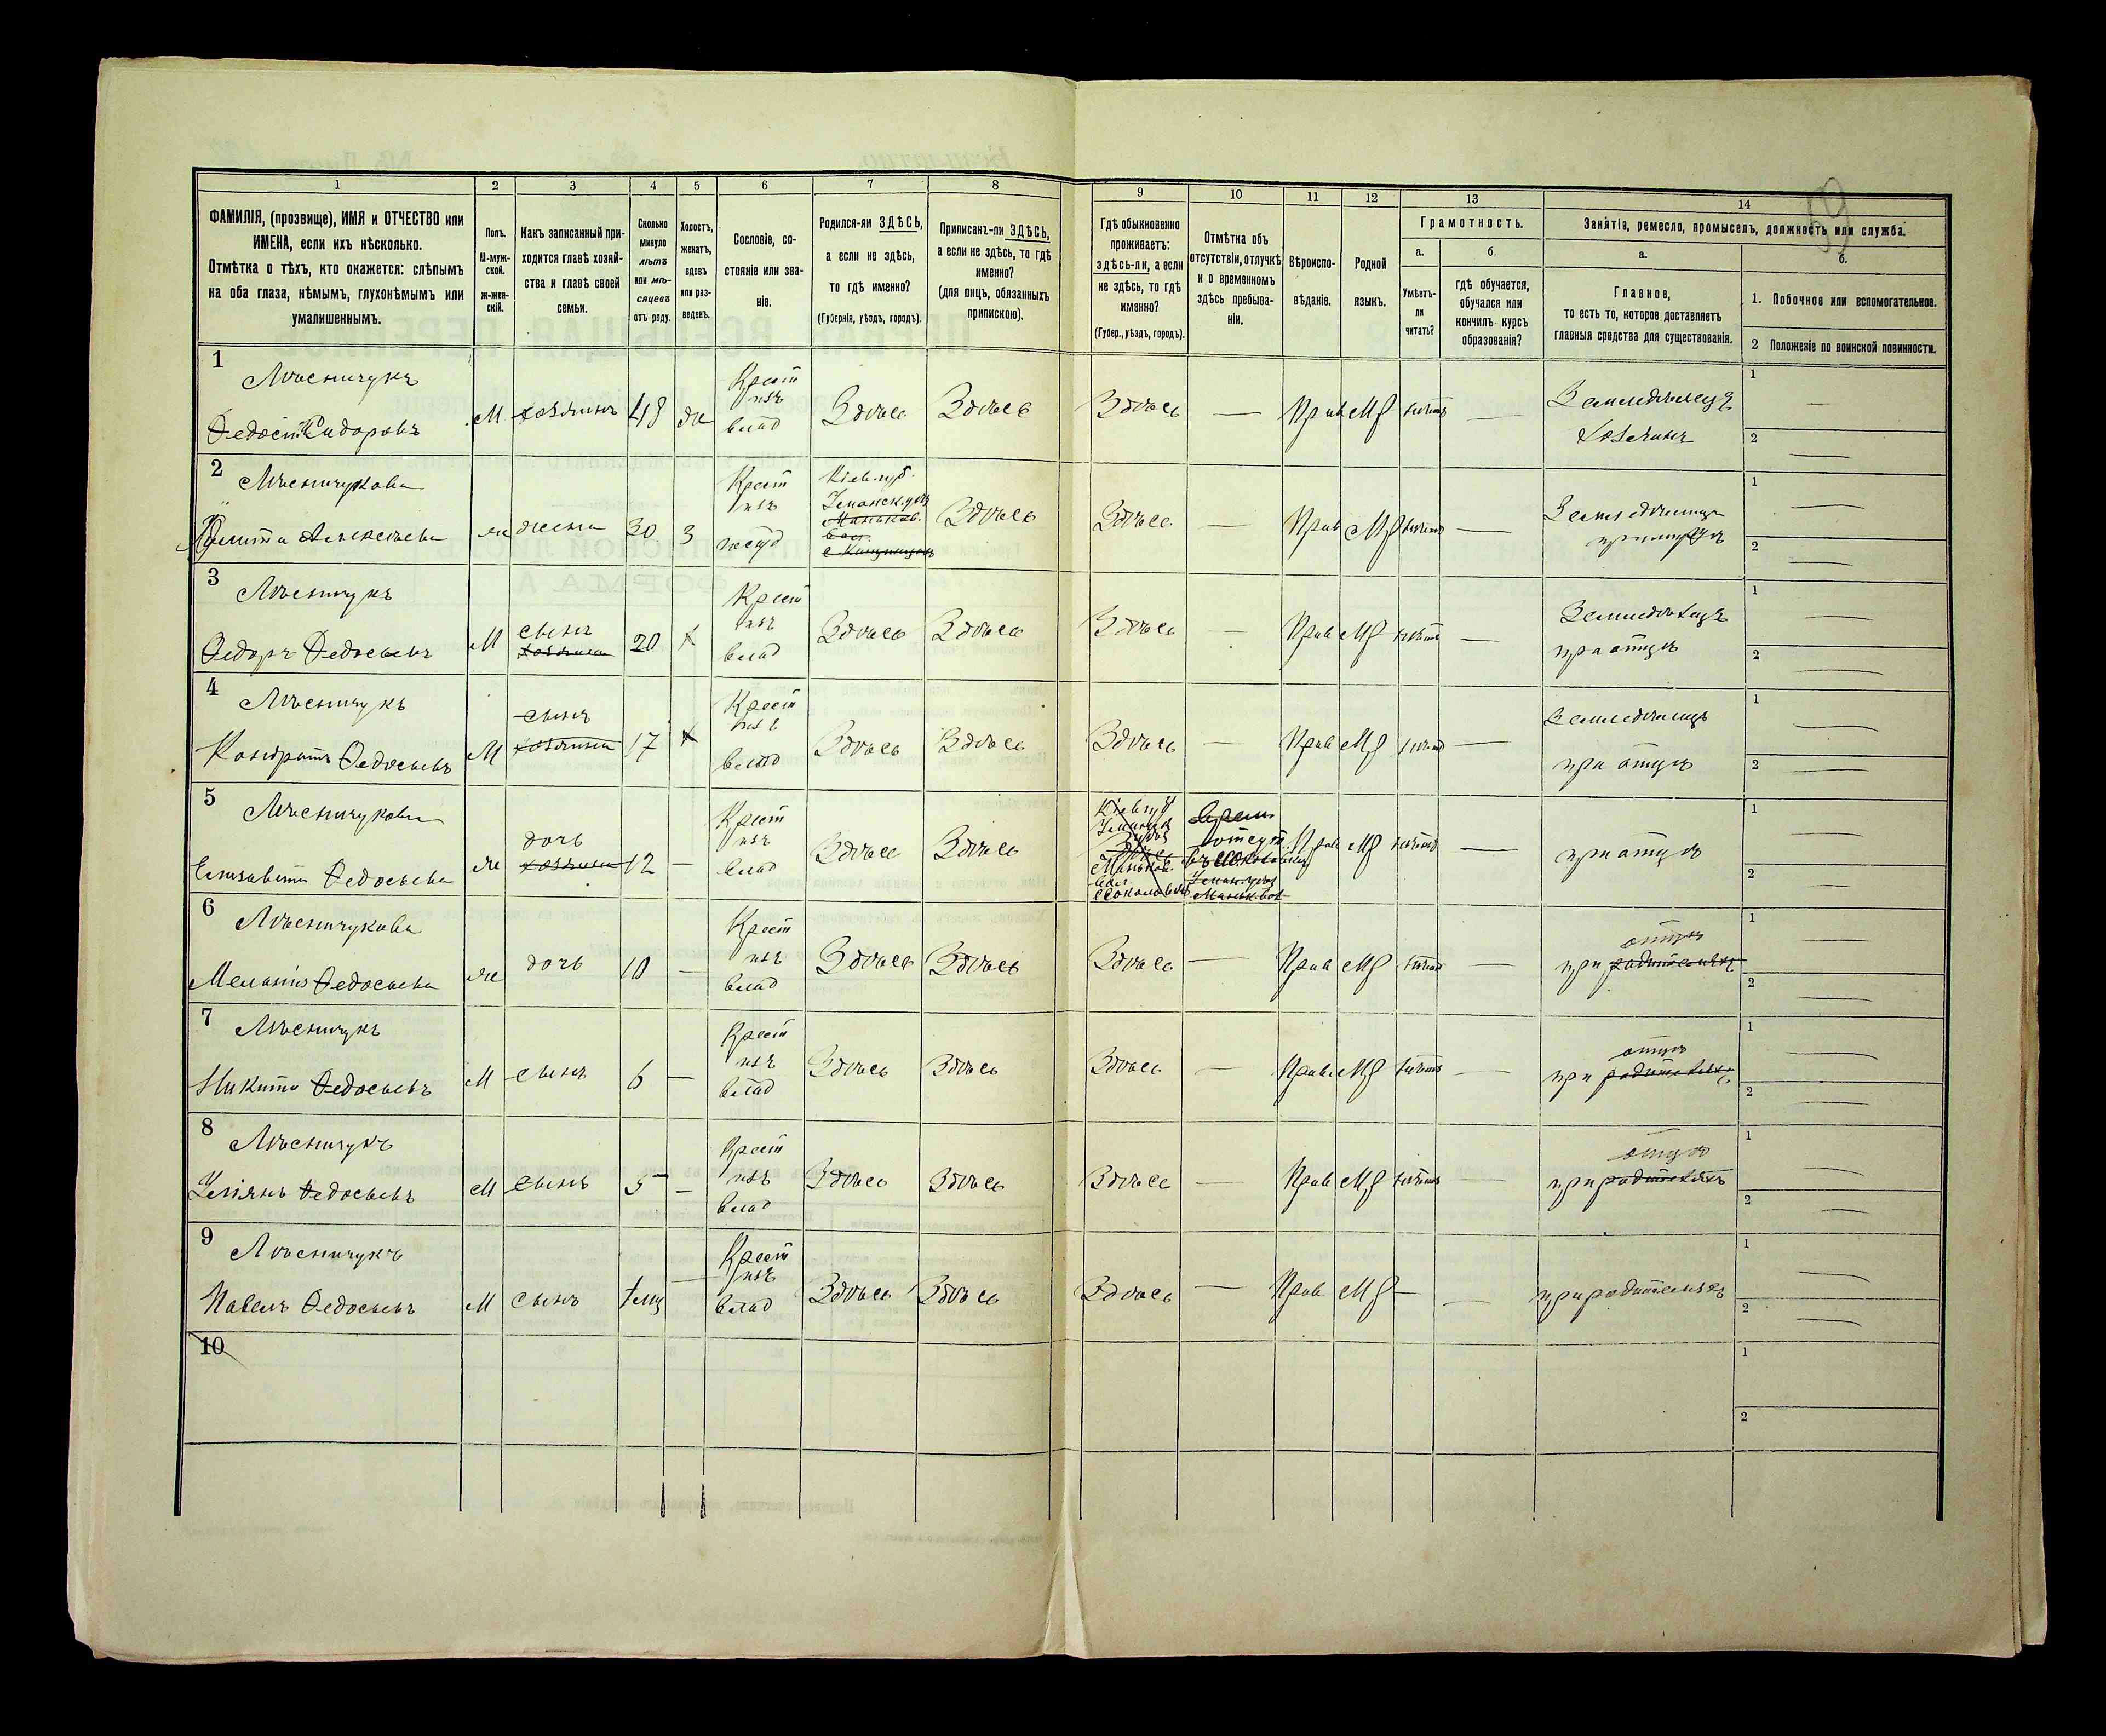 59
1 2 3 4 5 6 7 8 9 10 11 12 13 14
ФАМИЛІЯ, (прозвище), ИМЯ и ОТЧЕСТВО или
ИМЕНА, если ихъ нѣсколько.
Отмѣтка о тѣхъ, кто окажется: слѣпымъ
на оба глаза, нѣмымъ, глухонѣмымъ или
умалишеннымъ.
Полъ.
М-муж-
ской.
ж-жен-
скій.
Какъ записанный при-
ходится главѣ хозяй-
ства и главѣ своей
семьи.
Сколько
минуло
лѣтъ
или мѣ-
сяцевъ
отъ роду.
Холостъ,
женатъ,
вдовъ
или раз-
веденъ.
Сословіе, со-
стояніе или зва-
ніе.
Родился-ли ЗДѢСЬ,
а если не здѣсь,
то гдѣ именно?
(Губернія, уѣздъ, городъ).
Приписанъ-ли ЗДѢСЬ,
а если не здѣсь, то гдѣ
именно?
(для лицъ, обязанныхъ
припискою).
Гдѣ обыкновенно
проживаетъ:
здѣсь-ли, а если
не здѣсь, то гдѣ
именно?
(Губер., уѣздъ, городъ).
Отмѣтка объ
отсутствіи, отлучкѣ
и о временномъ
здѣсь пребыва-
ніи.
Вѣроиспо-
вѣданіе.
Родной
языкъ.
Грамотность.
а.
Умѣетъ-
ли
читать?
б.
гдѣ обучается,
обучался или
кончилъ курсъ
образованія?
Занятіе, ремесло, промыселъ, должность или служба.
а.
Главное,
то есть то, которое доставляетъ
главныя средства для существованія.
б.
1. Побочное или вспомогательное.
2 Положеніе по воинской повинности.
1
Лѣсничукъ
Федосій Сидоровъ
М хозяинъ 48 ж
Крест
изъ
влад
Здѣсь Здѣсь Здѣсь — Прав МР нѣтъ —
Земледѣлецъ
хозяинъ
1 —
2 —
2
Лѣсничукова
Алексѣева
ж жена 30 З
Крест
изъ
госуд
Кіев. губ.
Уманск. уѣз
Маньков.
вол.
Здѣсь Здѣсь — Прав МР нѣтъ —
при мужѣ
1 —
2 —
3
Лѣсничукъ
Федоръ Федосьевъ
М сынъ 20 х
хозяина
Крест
изъ
влад
Здѣсь Здѣсь Здѣсь — Прав МР нѣтъ —
Земледѣлецъ
при отцѣ
1 —
2 —
4
Лѣсничукъ
Кондратъ Федосьевъ
М сынъ 17 х
хозяина
Крест
изъ
влад
Здѣсь Здѣсь Здѣсь — Прав МР нѣтъ —
Земледѣлецъ
при отцѣ
1 —
2 —
5
Лѣсничукова
Елизавета Федосьева
ж дочь 12 —
хозяина
Крест
изъ
влад
Здѣсь Здѣсь
Кіев. губ
Маньков.
вол
Прав МР нѣтъ —
при отцѣ
1 —
2 —
6
Лѣсничукова
Меланія Федосьева
ж дочь 10 —
Крест
изъ
влад
Здѣсь Здѣсь Здѣсь — Прав МР нѣтъ —
отцѣ
при родителяхъ
1 —
2 —
7
Лѣсничукъ
Никита Федосьевъ
М сынъ 6 —
Крест
изъ
влад
Здѣсь Здѣсь Здѣсь — Прав МР нѣтъ —
отцѣ
при родителяхъ
1 —
2 —
8
Лѣсничукъ
Уліянъ Федосьевъ
М сынъ 5 —
Крест
изъ
влад
Здѣсь Здѣсь Здѣсь — Прав МР нѣтъ —
отцѣ
при родителяхъ
1 —
2 —
9
Лѣсничукъ
Павелъ Федосьевъ
М сынъ —
Крест
изъ
влад
Здѣсь Здѣсь Здѣсь — Прав МР — —
при родителяхъ
1 —
2 —
10
1
2